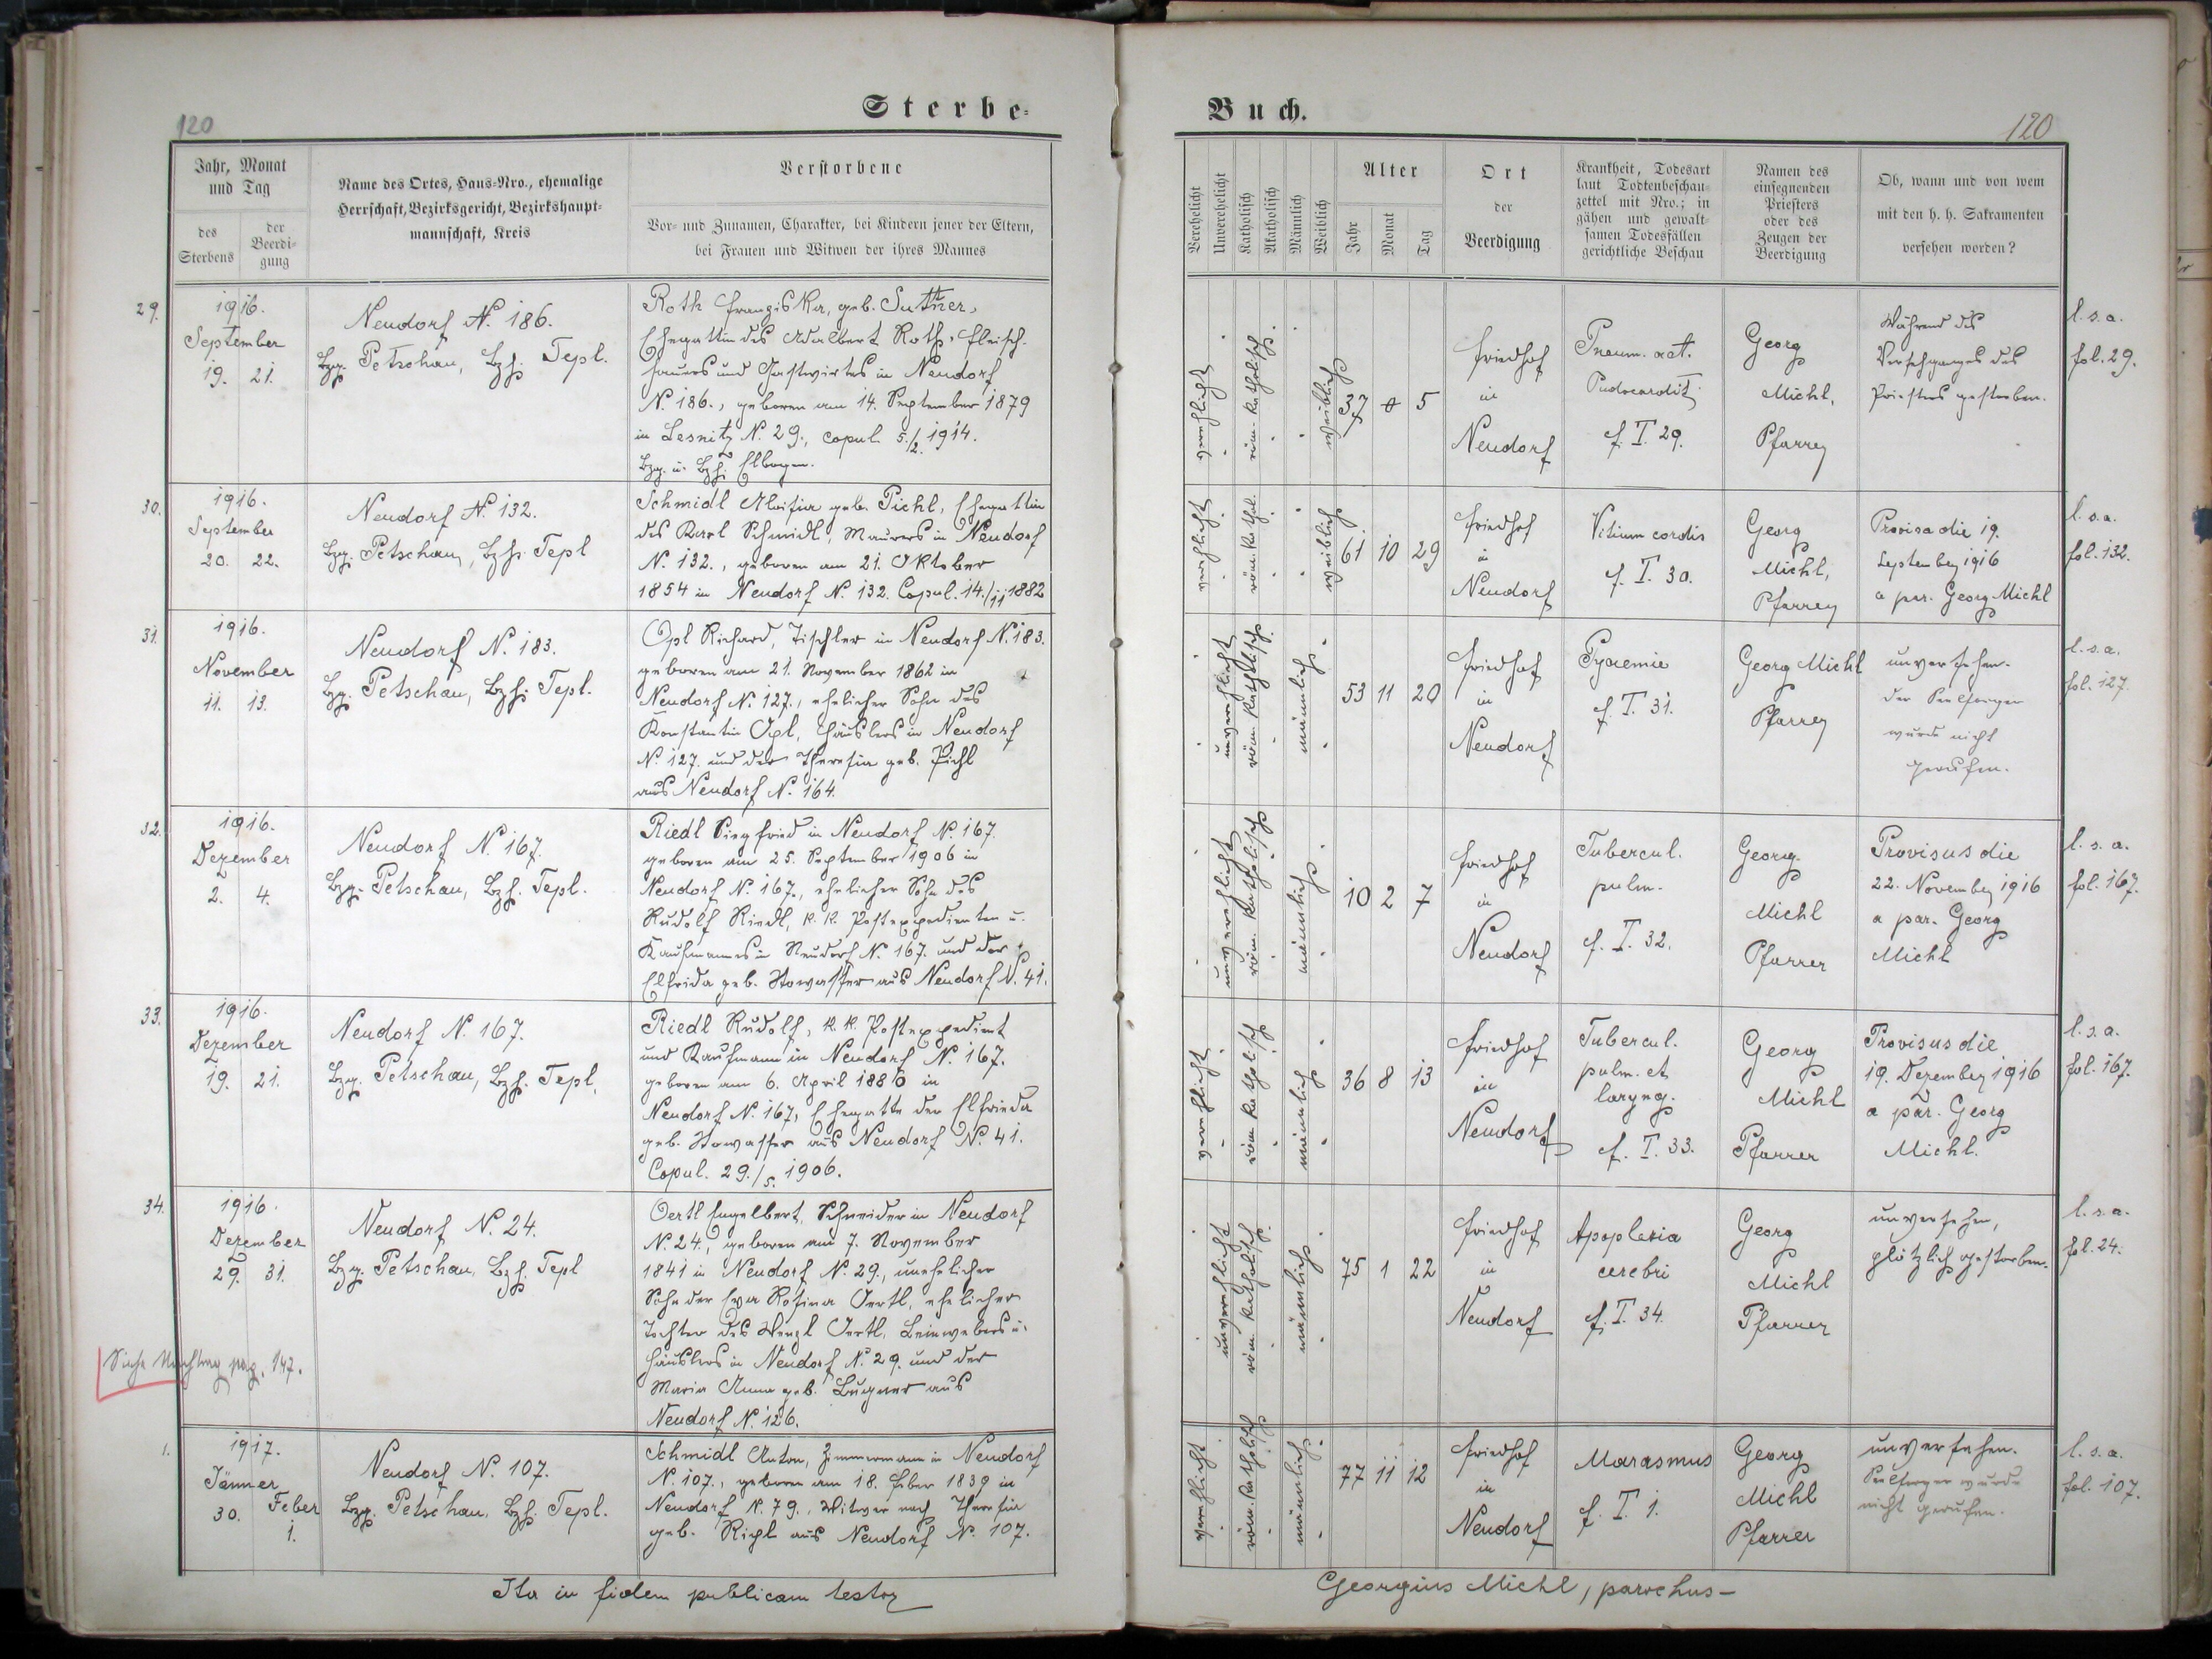 120
Sterbe-
Buch.
120
Jahr, Monat
und Tag
des
Sterbens
der
Beerdi-
gung
Name des Ortes, Haus-Nro., ehemalige
Herrschaft, Bezirksgericht, Bezirkshaupt-
mannschaft, Kreis
Verstorbene
Vor- und Zunamen, Charakter, bei Kindern jener der Eltern,
bei Frauen und Witwen der ihres Mannes
Verehelicht
Unverehelicht
Katholisch
Akatholisch
Männlich
Weiblich
Alter
Jahr
Monat
Tag
Ort
der
Beerdigung
Krankheit, Todesart
laut Todtenbeschau-
zettel mit Nro.; in
gähen und gewalt-
samen Todesfällen
gerichtliche Beschau
Namen des
einsegnenden
Priesters
oder des
Zeugen der
Beerdigung
Ob, wann und von wem
mit den h. h. Sakramenten
versehen worden?
29.
1916.
September
19. 21.
Neudorf N. 186.
Bzg. Petschau, Bzh. Tepl.
Roth Franziska, geb. Suttner,
Ehegattin des Adalbert Roth, Fleisch-
hauers und Gastwirtes in Neudorf
N. 186., geboren am 14. September 1879
in Lesnitz N. 29., copul. 5./2. 1914.
Bzg. u. Bzh. Elbogen.
verehlicht
röm. katholisch
weiblich
37 0 5
Friedhof
in
Neudorf
Pneum. act.
f. T. 29.
Georg
Michl,
Pfarrer
Während des
Versehganges des
Priesters gestorben.
l. s. a.
fol. 29.
30.
1916.
September
20. 22.
Neudorf N. 132.
Bzg. Petschau, Bzh. Tepl
Schmidl Aloisia geb. Pichl, Ehegattin
des Karl Schmidl, Maurers in Neudorf
N. 132., geboren am 21. Oktober
1854 in Neudorf N. 132. Copul. 14./11 1882
verehlicht
röm. kathol.
weiblich
61 10 29
Friedhof
in
Neudorf
Vitium cordis
f. T. 30.
Georg
Michl,
Pfarrer
Provisa die 19.
September 1916
a par. Georg Michl
l. s. a.
fol. 132.
31.
1916.
November
11. 13.
Neudorf N. 183.
Bzg. Petschau, Bzh. Tepl.
Opl Richard, Tischler in Neudorf N. 183.
geboren am 21. November 1862 in
Neudorf N. 127., ehelicher Sohn des
Konstantin Opl, Häuslers in Neudorf
N. 127. und der Theresia geb. Pichl
aus Neudorf N. 164.
unverehlicht
röm. katholisch
männlich
53 11 20
Friedhof
in
Neudorf
Pyaemie
f. T. 31.
Georg Michl
Pfarrer
unversehen.
der Seelsorger
wurde nicht
gerufen.
l. s. a.
fol. 127.
32.
1916.
Dezember
2. 4.
Neudorf N. 167.
Bzg. Petschau, Bzh. Tepl.
Riedl Siegfried in Neudorf N. 167.
geboren am 25. September 1906 in
Neudorf N. 167., ehelicher Sohn des
Rudolf Riedl, k. k. Postexpedienten u.
Kaufmannes in Neudorf N. 167. und der
Elfrida geb. Stowasser aus Neudorf N. 41.
unverehlicht
röm. katholisch
männlich
10 2 7
Friedhof
in
Neudorf
Tubercul.
pulm.
f. T. 32.
Georg
Michl
Pfarrer
Provisus die
22. November 1916
a par. Georg
Michl
l. s. a.
fol. 167.
33.
1916.
Dezember
19. 21.
Neudorf N. 167.
Bzg. Petschau, Bzh. Tepl.
Riedl Rudolf, k. k. Postexpedient
und Kaufmann in Neudorf N. 167.
geboren am 6. April 1880 in
Neudorf N. 167, Ehegatte der Elfrieda
geb. Stowasser aus Neudorf N. 41.
Copul. 29./5. 1906.
verehlicht
röm. katholisch
männlich
36 8 13
Friedhof
in
Neudorf
Tubercul.
pulm. et
laryng.
f. T. 33.
Georg
Michl
Pfarrer
Provisus die
19. Dezember 1916
a par. Georg
Michl.
l. s. a.
fol. 167.
34.
1916.
Dezember
29. 31.
Neudorf N. 24.
Bzg. Petschau, Bzh. Tepl
Siehe Nachtrag pag. 147.
Oertl Engelbert, Schneider in Neudorf
N. 24., geboren am 7. November
1841 in Neudorf N. 29., unehelicher
Sohn der Eva Rosina Oertl, ehelicher
Tochter des Wenzl Oertl, Leinwebers u.
Häuslers in Neudorf N. 29. und der
Maria Anna geb. Lugner aus
Neudorf N. 126.
unverehlicht
röm. katholisch
männlich
75 1 22
Friedhof
in
Neudorf
Apoplexia
cerebri
f. T. 34.
Georg
Michl
Pfarrer
unversehen,
plötzlich gestorben.
l. s. a.
fol. 24.
1.
1917.
Jänner
30. Feber
1.
Neudorf N. 107.
Bzg. Petschau, Bzh. Tepl.
Schmidl Anton, Zimmermann in Neudorf
N. 107., geboren am 18. Feber 1839 in
Neudorf N. 79., Witwer nach Theresia
geb. Riehl aus Neudorf N. 107.
verehlicht
röm. katholisch
männlich
77 11 12
Friedhof
in
Neudorf
Marasmus
f. T. 1.
Georg
Michl
Pfarrer
unversehen.
Seelsorger wurde
nicht gerufen.
l. s. a.
fol. 107.
Ita in fidem publicam testor
Georgius Michl, parochus-